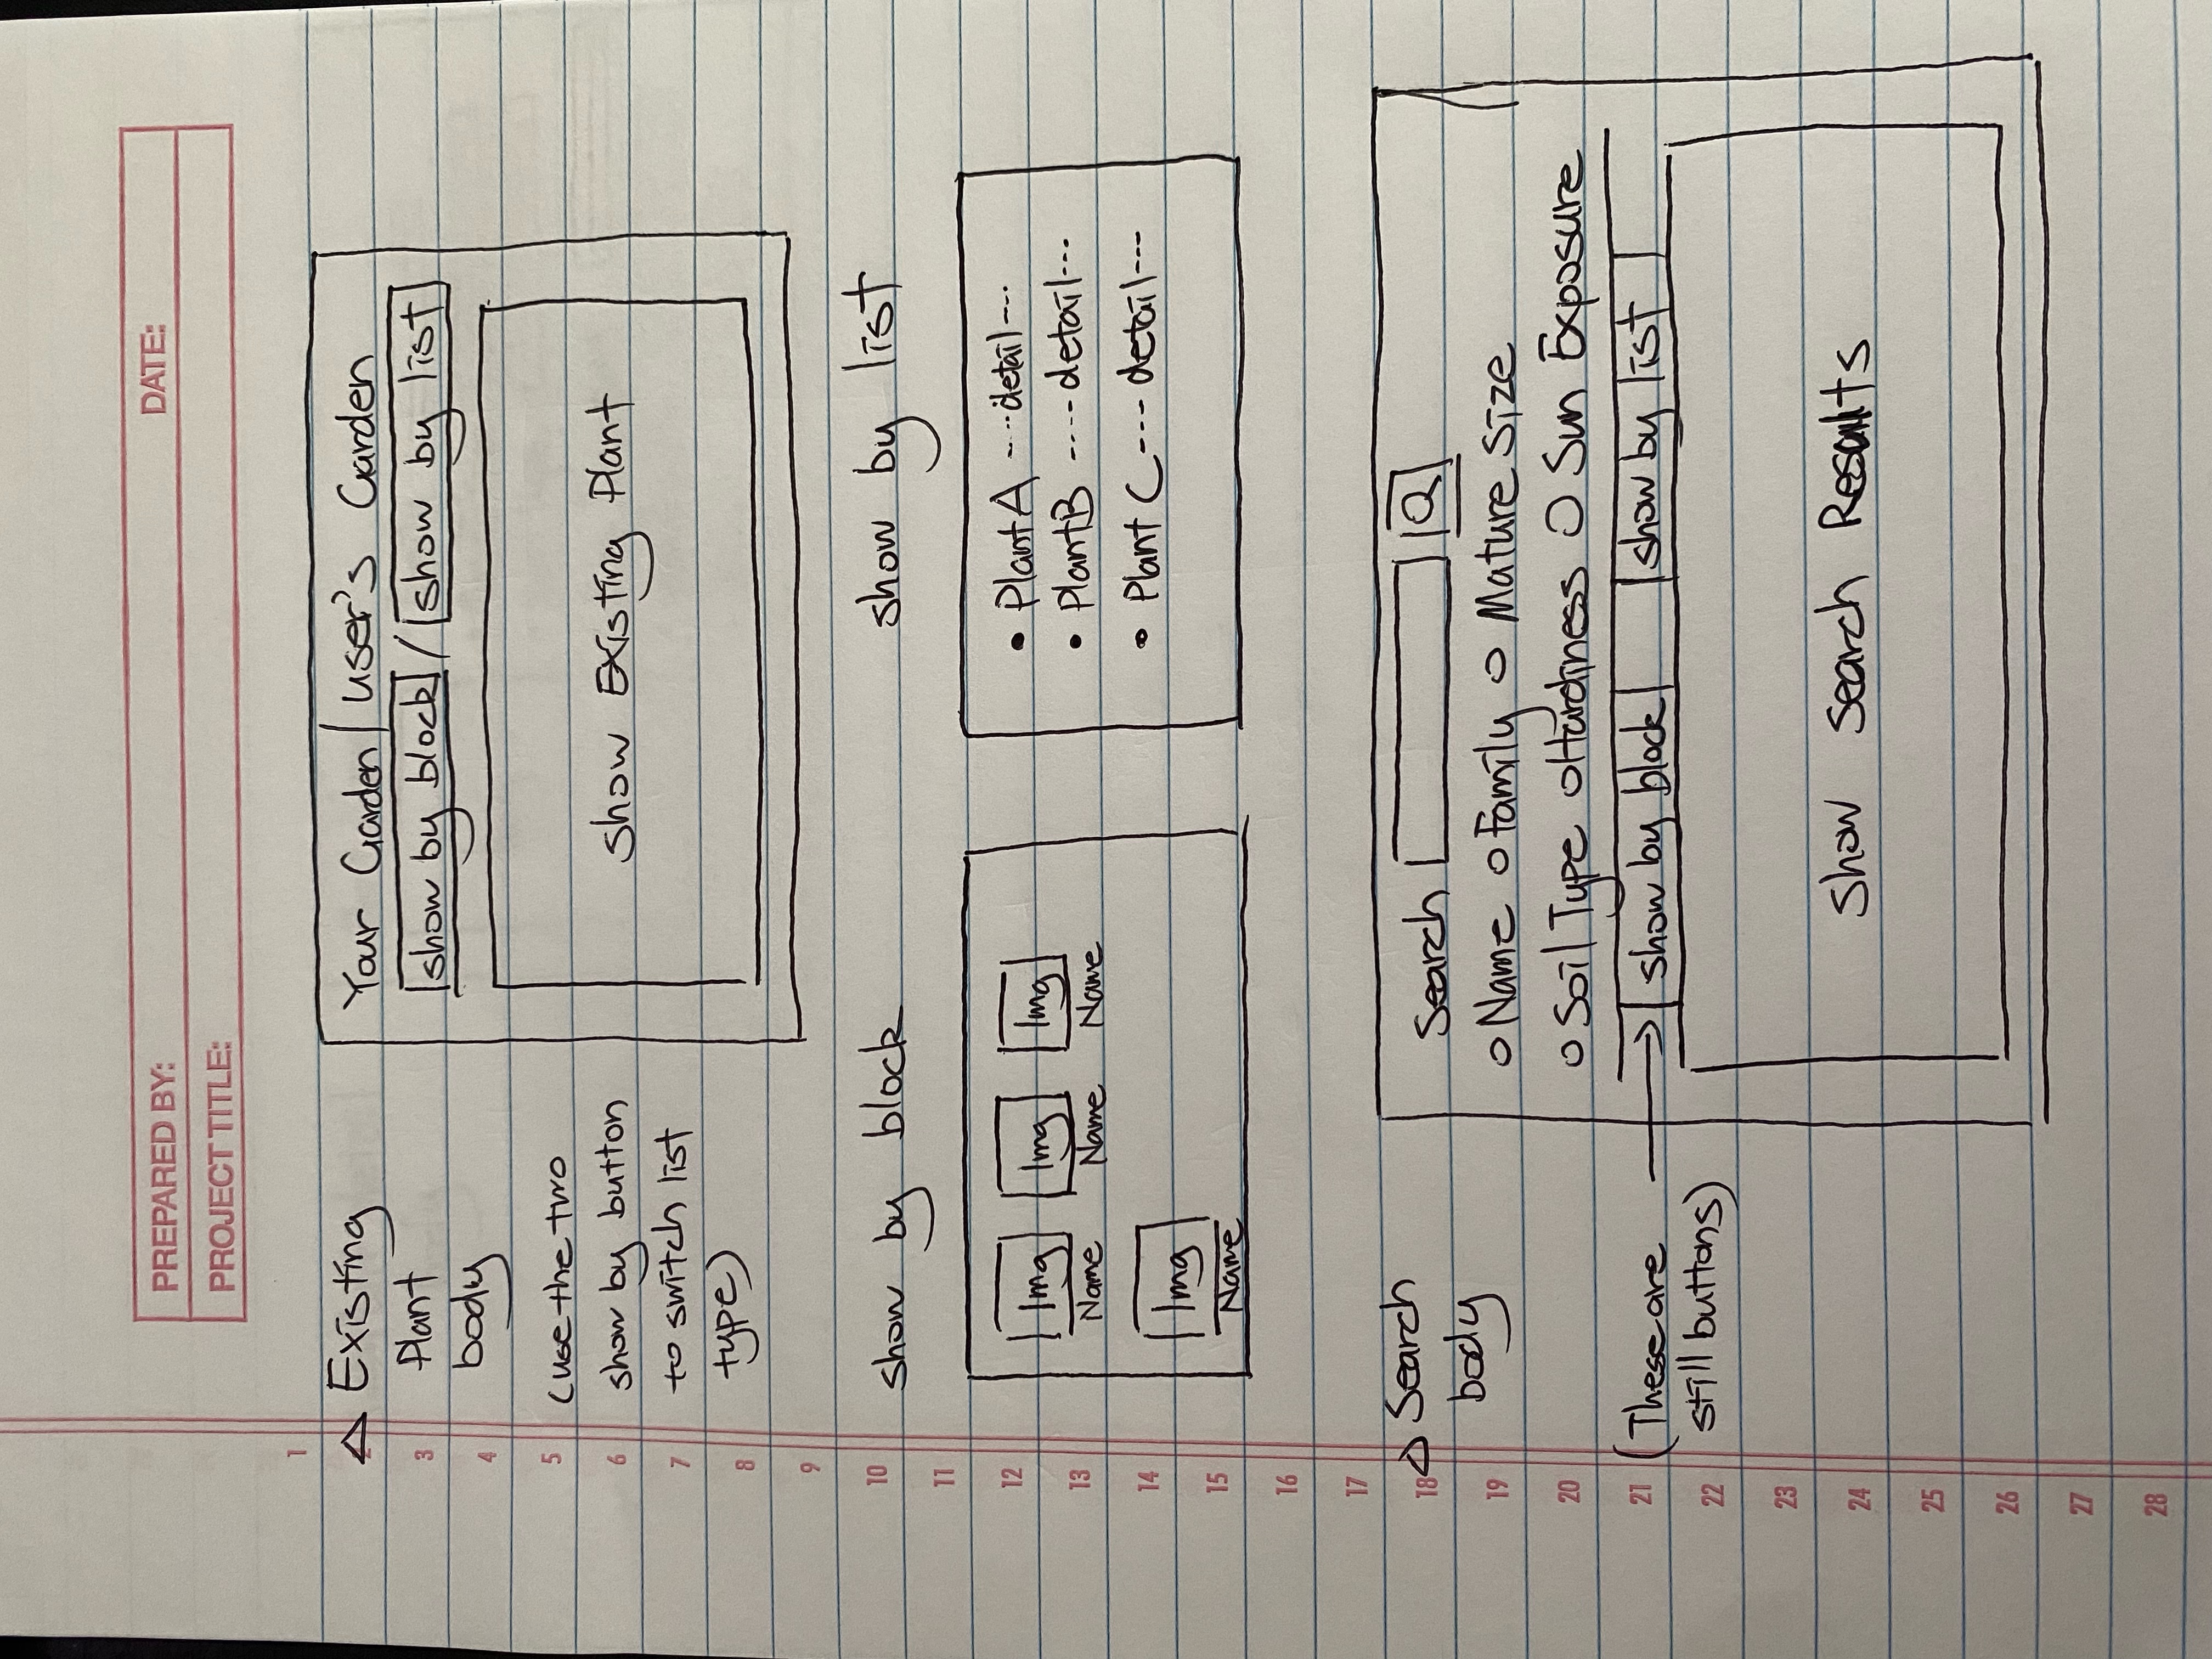 PREPARED BY: DATE:
PROJECT TITLE:
1
2
3
4
5
6
7
8
9
10
11
12
13
14
15
16
17
18
19
20
21
22
23
24
25
26
27
28
Existing
Plant
body
(use the two
show by button
to switch list
type)
Your Garden | user's Garden
show by block / show by list
show Existing Plant
show by block
Img Img Img
Name Name Name
Img
Name
show by list
• Plant A ---detail---
• Plant B ---- detail---
• Plant C --- detail---
Search
body
Search Q
○ Name ○ Family ○ Mature size
○ Soil Type ○ Hardiness ○ Sun Exposure
(These are
still buttons)
show by block show by list
show Search Results